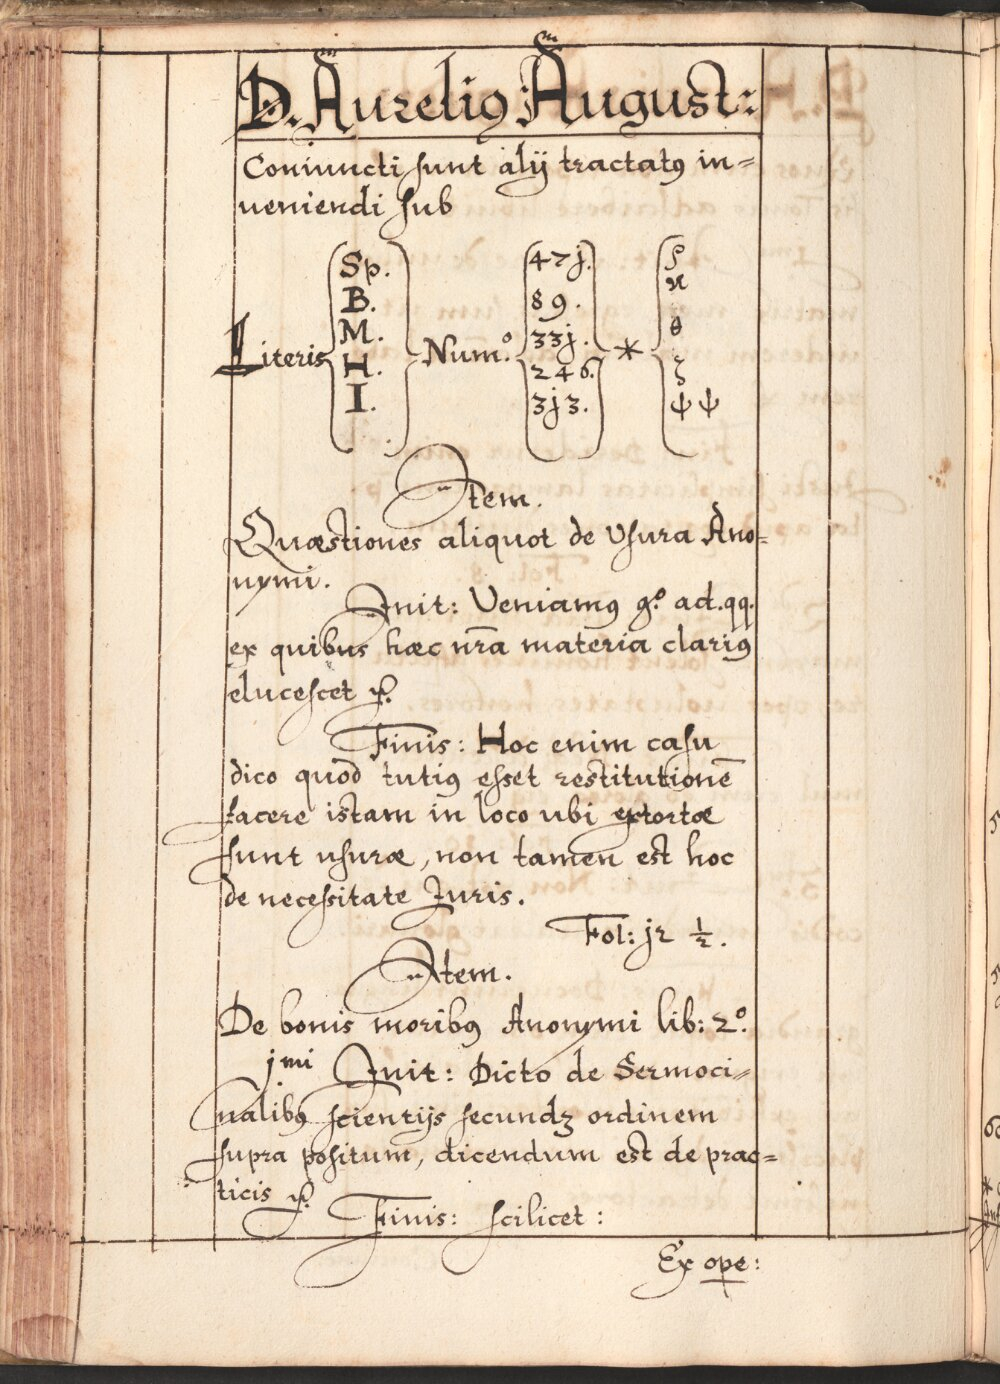 D. Aurelig August:
Coniuncti sunt alij tractatg in=
ueniendi sub
Literis Sp. B. M. H. I. Num.º 47j. 89. 33j. 246. 3j3. * ꝭ ϰ θ ζ ψψ
Item.
Quæstiones aliquot de Usura Ano=
nymi.
Init: Veniamg gº. ad.qq.
ex quibus hæc nr̄a materia clarig
elucescet ꝛc.
Finis: Hoc enim casu
dico quod tutig esset restitutionē
facere istam in loco ubi extortæ
sunt usuræ, non tamen est hoc
de necessitate Juris.
Fol: j2 ½.
Item.
De bonis moribg Anonymi lib: 2º.
jmi Init: Dicto de Sermoci=
nalibg scientijs secundʒ ordinem
supra positum, dicendum est de prac=
ticis ꝛc.
Finis: scilicet:
Ex ope: